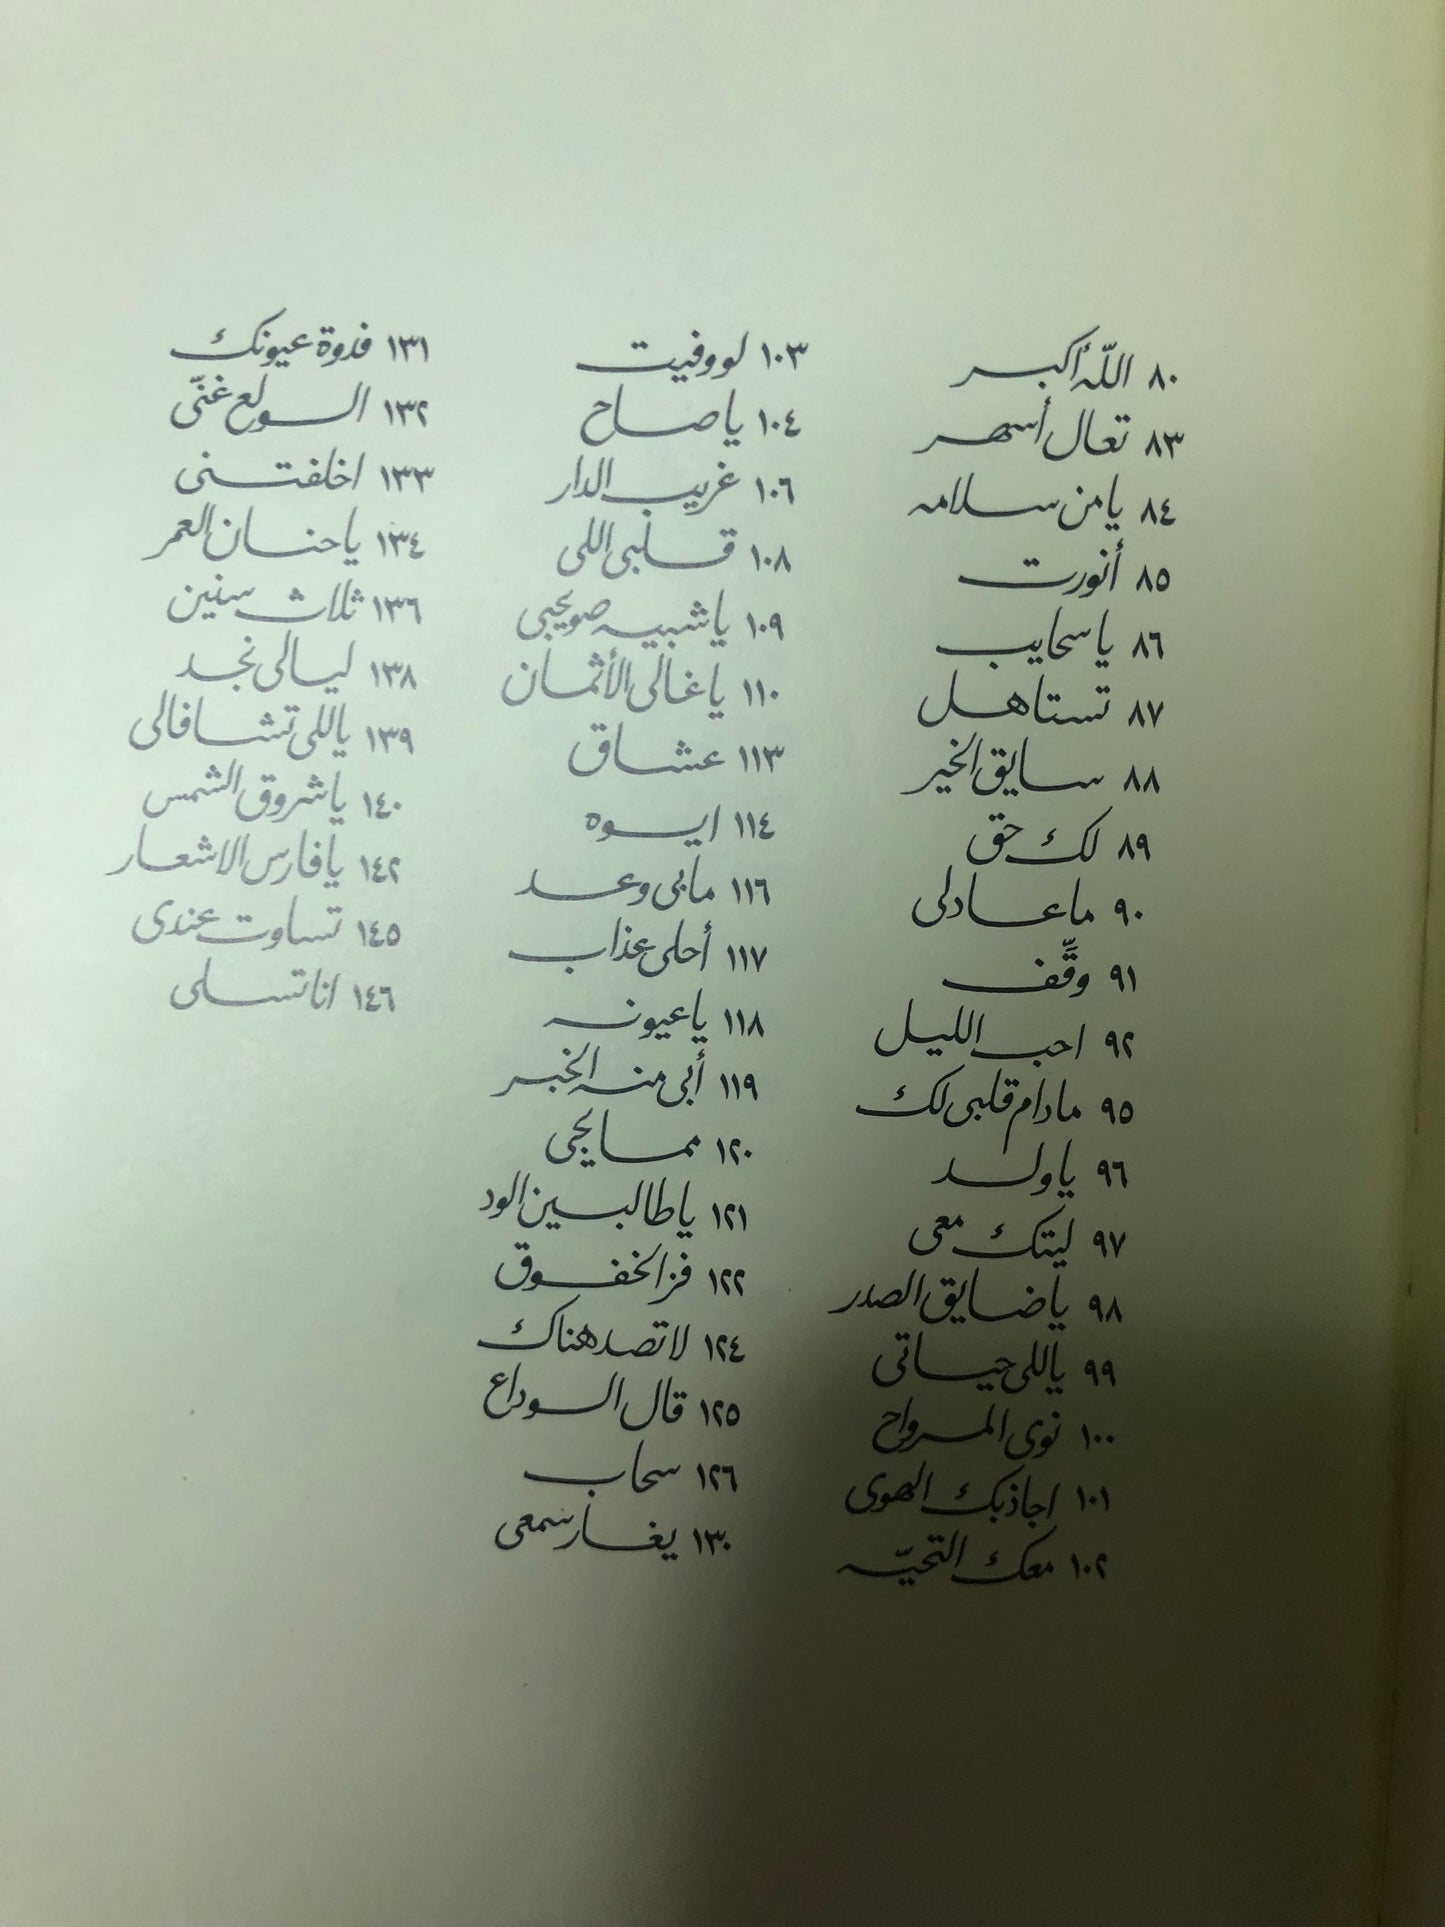 ٨٠ اللّه أكبر
٨٣ تعال أسهر
٨٤ يامن سلامه
٨٥ أنورت
٨٦ ياسحايب
٨٧ تستاهل
٨٨ سايق الخير
٨٩ لك حق
٩٠ ماعادلى
٩١ وقِّف
٩٢ احب الليل
٩٥ مادام قلبى لك
٩٦ ياولد
٩٧ ليتك معى
٩٨ ياضايق الصدر
٩٩ ياللى حياتى
١٠٠ نوى المرواح
١٠١ اجاذبك الهوى
١٠٢ معك التحيّه
١٠٣ لو وفيت
١٠٤ ياصاح
١٠٦ غريب الدار
١٠٨ قلبى اللى
١٠٩ ياشبيه صويحبى
١١٠ ياغالى الأثمان
١١٣ عشاق
١١٤ ايوه
١١٦ مابى وعد
١١٧ أحلى عذاب
١١٨ ياعيونه
١١٩ أبى منه الخبر
١٢٠ ممايجى
١٢١ ياطالبين الود
١٢٢ فز الخفوق
١٢٤ لاتصد هناك
١٢٥ قال الوداع
١٢٦ سحاب
١٣٠ يغار سمعى
١٣١ فدوة عيونك
١٣٢ الولع غنّى
١٣٣ اخلفتنى
١٣٤ ياحنان العمر
١٣٦ ثلاث سنين
١٣٨ ليالى نجد
١٣٩ ياللى تشافالى
١٤٠ ياشروق الشمس
١٤٢ يافارس الاشعار
١٤٥ تساوت عندى
١٤٦ اناتسلى